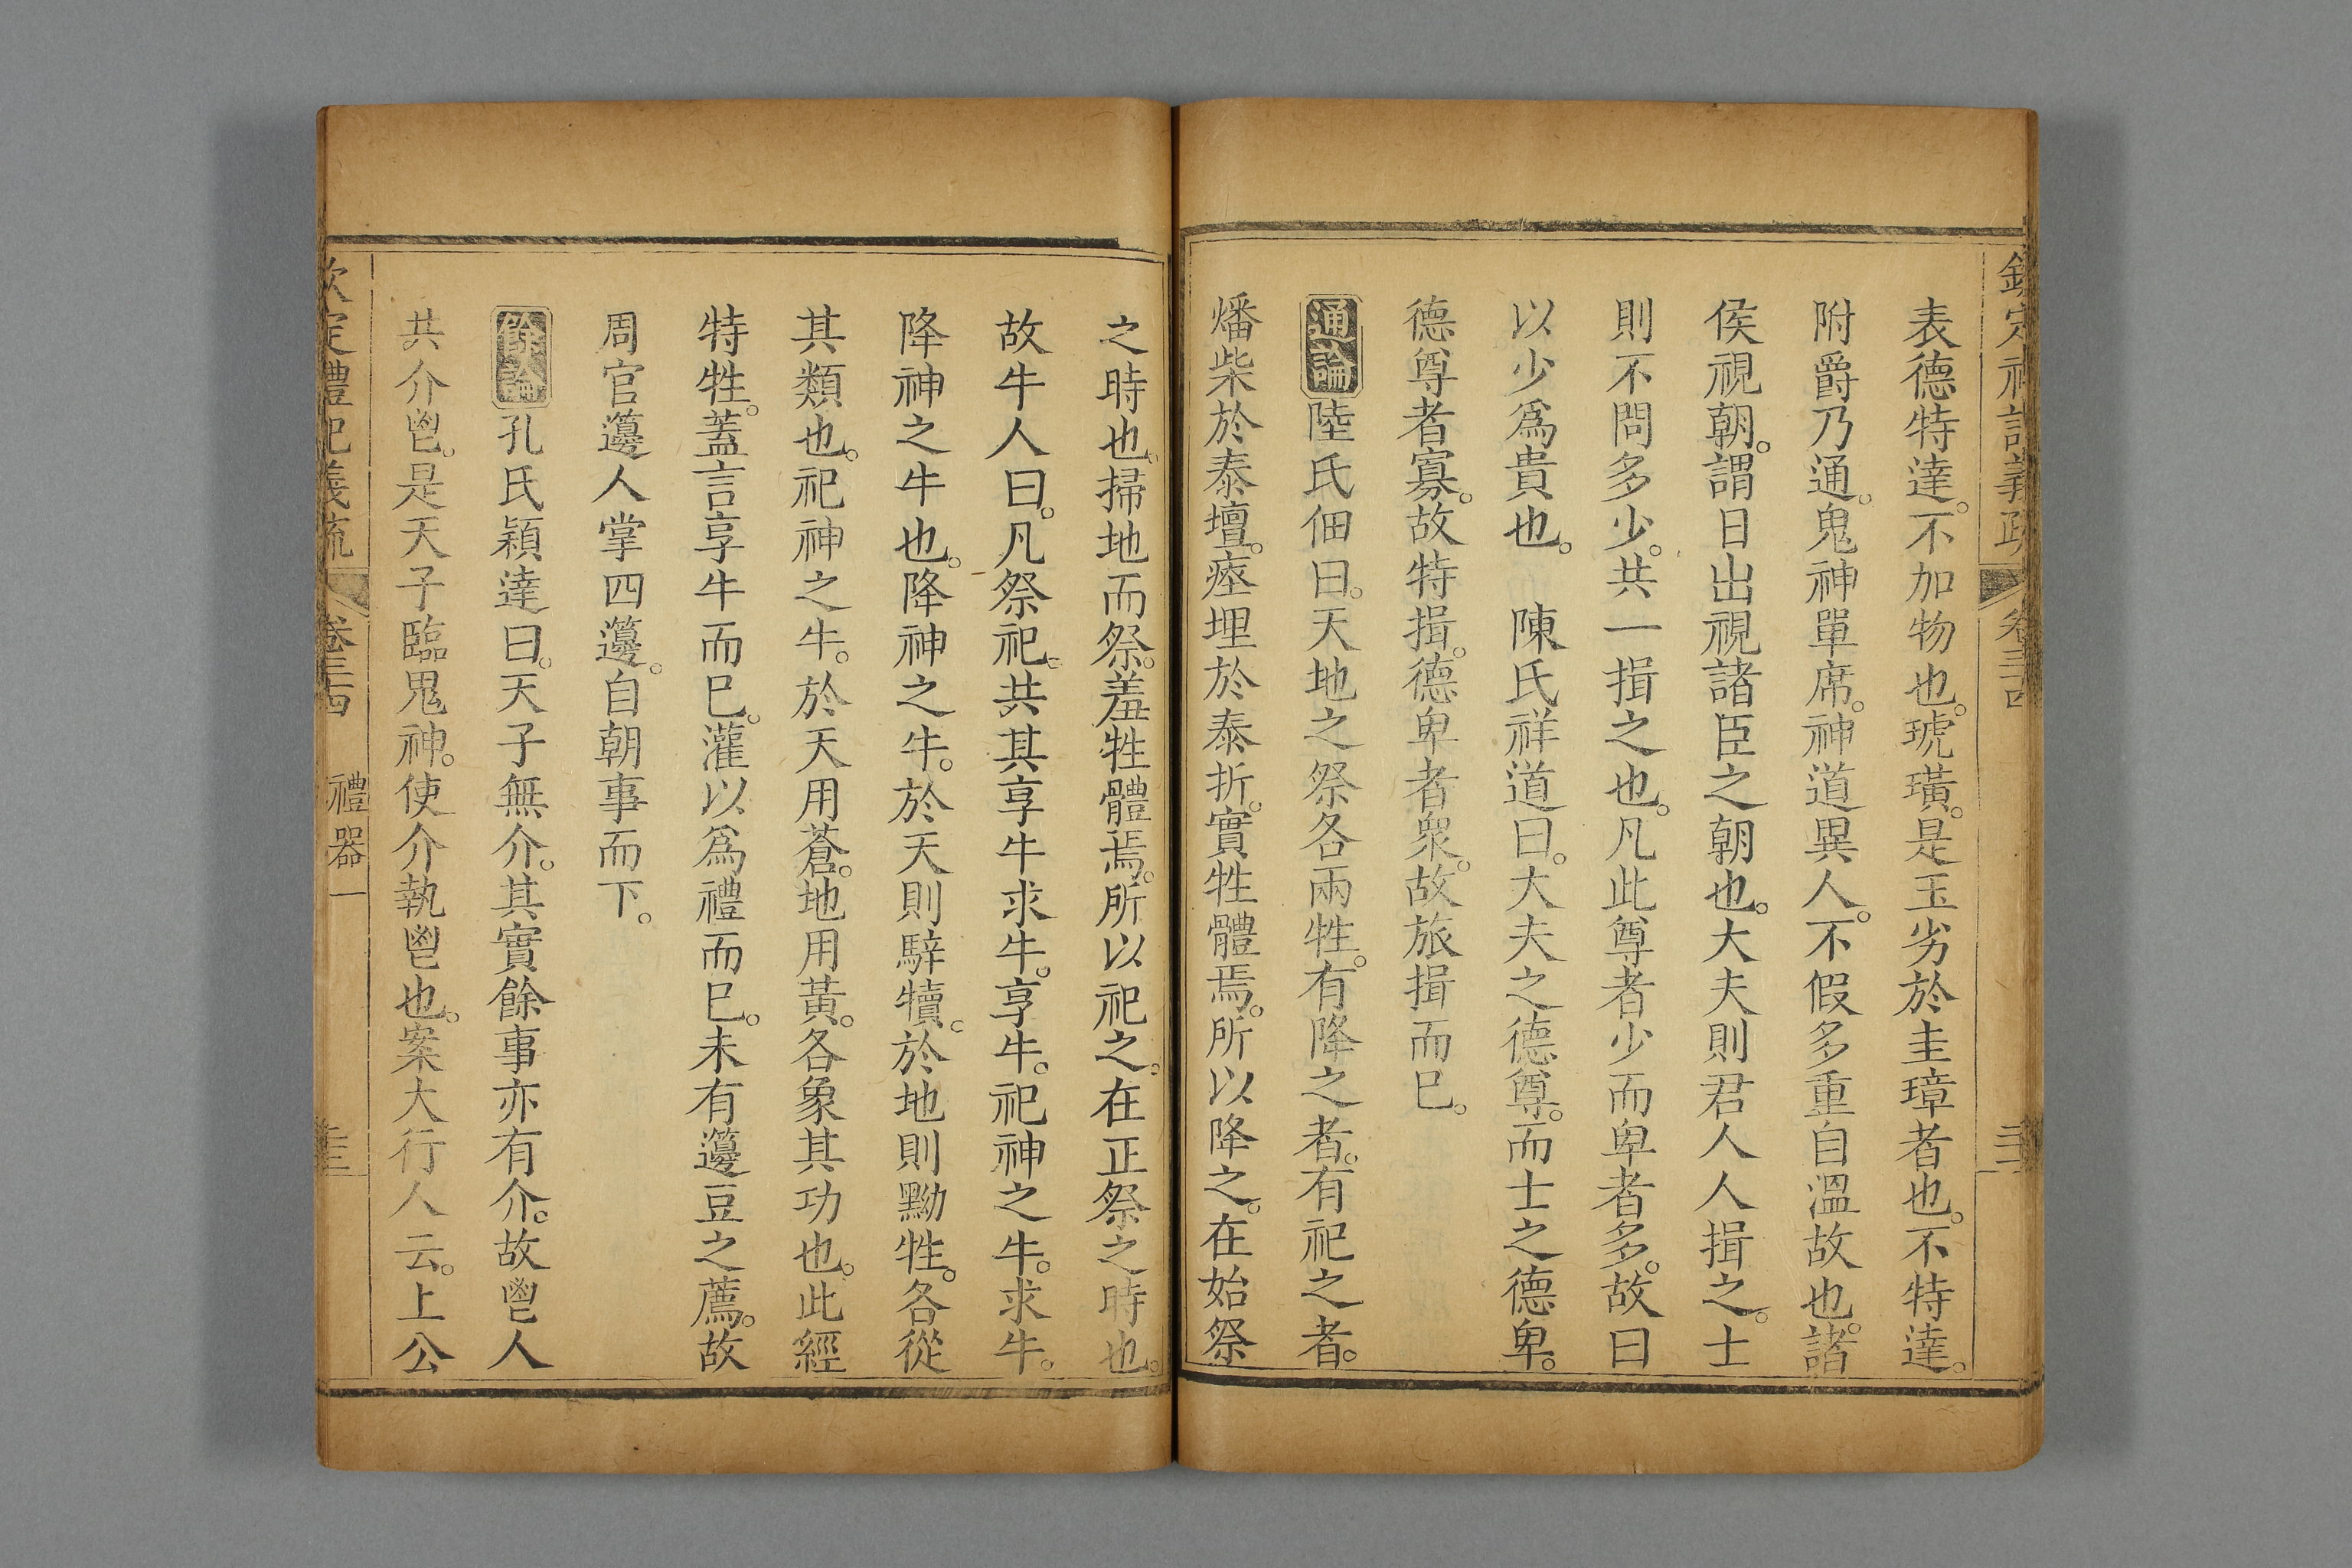 欽定禮記義疏 卷三十四
表德特達。不加物也。琥璜。是玉劣於圭璋者也。不特達。
附爵乃通。鬼神單席。神道異人。不假多重自溫故也。諸
侯視朝。謂日出視諸臣之朝也。大夫則君人人揖之。士
則不問多少。共一揖之也。凡此尊者少而卑者多。故曰
以少爲貴也。 陳氏祥道曰。大夫之德尊。而士之德卑。
德尊者寡。故特揖。德卑者衆。故旅揖而已。
通論 陸氏佃曰。天地之祭各兩牲。有降之者。有祀之者。
燔柴於泰壇。瘞埋於泰折。實牲體焉。所以降之。在始祭
之時也。掃地而祭。羞牲體焉。所以祀之。在正祭之時也。
故牛人曰。凡祭祀。共其享牛求牛。享牛。祀神之牛。求牛。
降神之牛也。降神之牛。於天則騂犢。於地則黝牲。各從
其類也。祀神之牛。於天用蒼。地用黃。各象其功也。此經
特牲。蓋言享牛而已。灌以爲禮而已。未有籩豆之薦。故
周官籩人掌四籩。自朝事而下。
餘論 孔氏穎達曰。天子無介。其實餘事亦有介。故鬯人
共介鬯。是天子臨鬼神。使介執鬯也。案大行人云。上公
欽定禮記義疏 卷三十四 禮器一